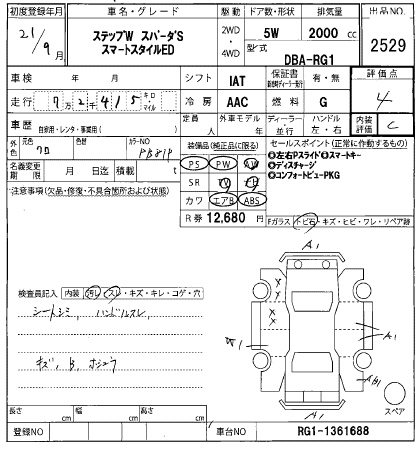 初度登録年月 車名・グレード 駆動 ドア数・形状 排気量 出品NO.
21/9月 ステップW スパーダS スマートスタイルED 2WD・4WD 5W 2000 cc 2529
型式 DBA-RG1
車検 年 月 シフト IAT 保証書 有・無 評価点
走行 7万2千415 キロ・マイル 冷房 AAC 燃料 G 4
車歴 自家用・レンタ・事業用( ) 定員 人 外車モデル 年 ディーラー・並行 ハンドル 左・右 内装評価 C
外色 元色 クロ 色替 カラーNO 装備品(純正品に限る) セールスポイント(正常に作動するもの)
名義変更期限 月 日迄 積載 t PS PW AW ❶左右Pスライド❷スマートキー
❸ディスチャージ
注意事項(欠品・修復・不具合箇所および状態) SR TV ❹コンフォートビューPKG
カワ エアB ABS
R券 ¥12,680 円
Fガラス トビ石・キズ・ヒビ・ワレ・リペア跡
A1
検査員記入 内装 汚レ・スレ・キズ・キレ・コゲ・穴
シートシミ, ハンドルスレ
A1
キズ, B, ホシュウ
スペア
A1
長さ cm 幅 cm 高さ cm
登録NO 車台NO RG1-1361688